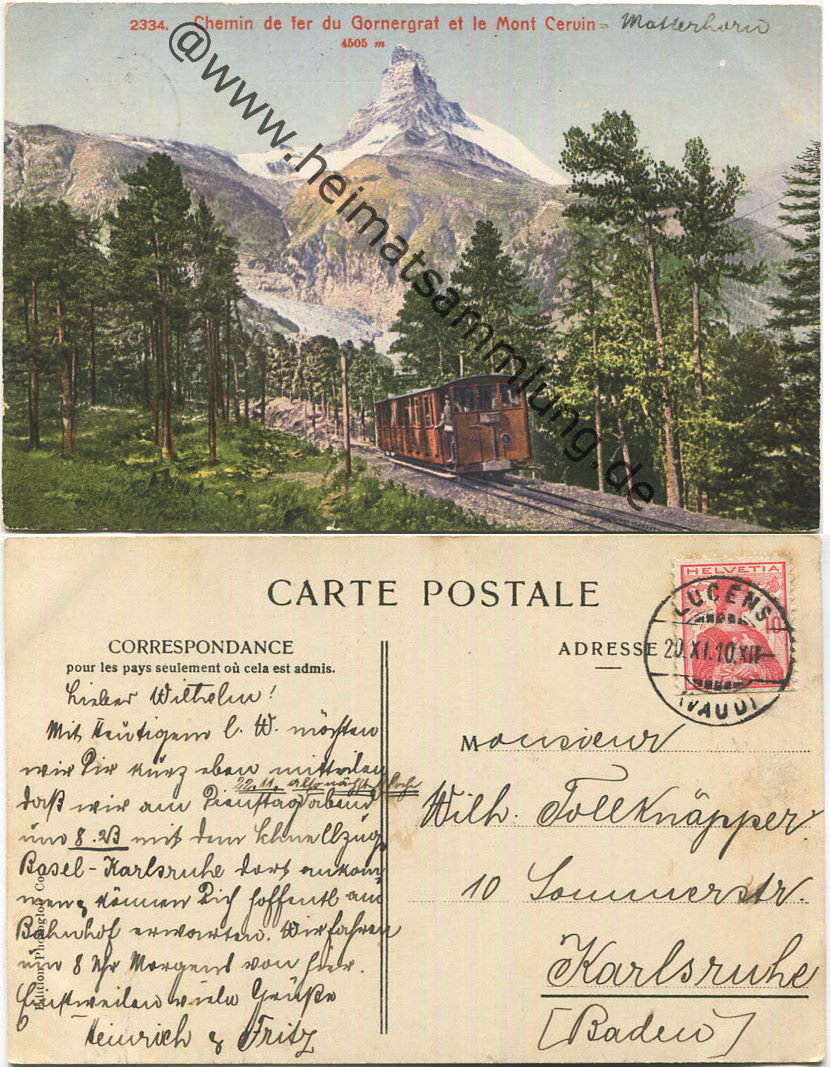 2334. Chemin de fer du Gornergrat et le Mont Cervin = Matterhorn
4505 m
@www.heimatsammlung.de
CARTE POSTALE
HELVETIA
10
LUCENS
20.XI.10.XII
(VAUD)
CORRESPONDANCE
pour les pays seulement où cela est admis.
ADRESSE
Lieber Wilhelm!
Mit Heutigem l. W. möchten
wir Dir kurz eben mitteilen
22.11. also nächste Woche
daß wir am Dienstag abend
um 8.23 mit dem Schnellzug
Basel-Karlsruhe dort ankom-
men & können Dich hoffentl am
Bahnhof erwarten. Wir fahren
um 8 Uhr Morgens von hier.
Einstweilen viele Grüße
Heinrich & Fritz
Monsieur
Wilh. Tollknäpper.
10 Sommerstr.
Karlsruhe
[Baden]
Edition Photoglob Co.